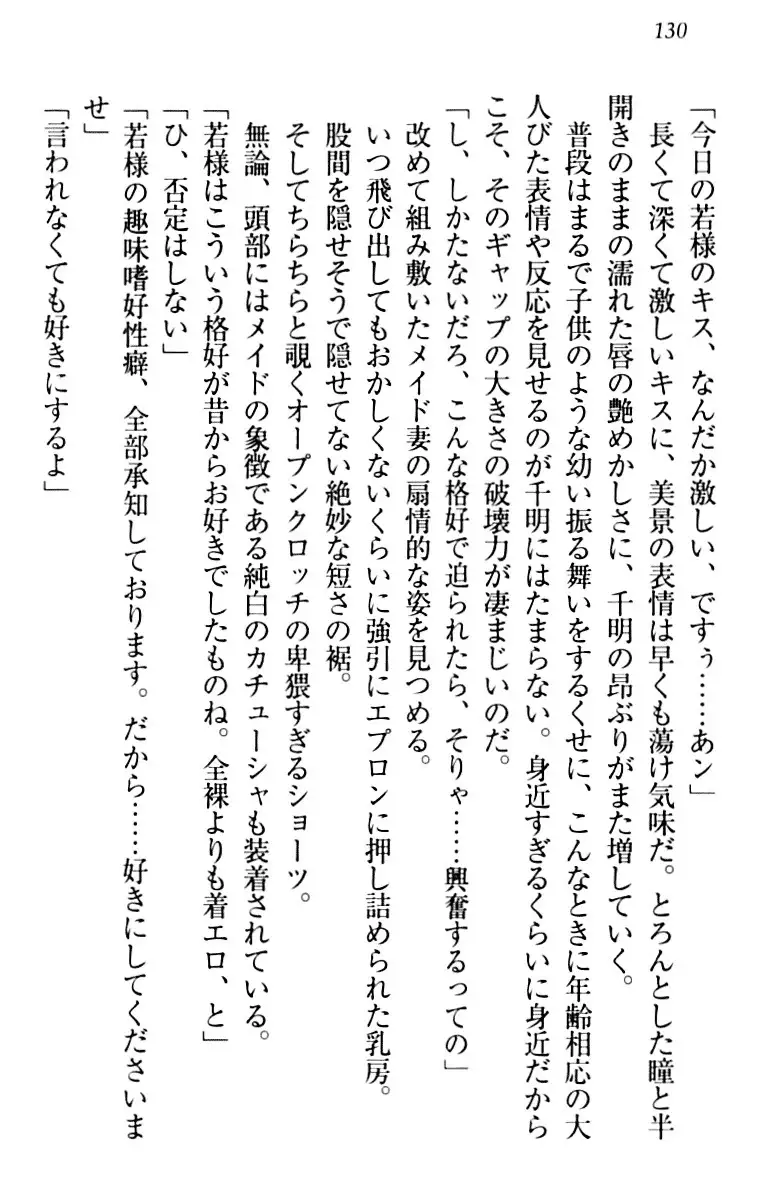 130
「今日の若様のキス、なんだか激しい、ですぅ……あン」
　長くて深くて激しいキスに、美景の表情は早くも蕩け気味だ。とろんとした瞳と半
開きのままの濡れた唇の艶めかしさに、千明の昂ぶりがまた増していく。
　普段はまるで子供のような幼い振る舞いをするくせに、こんなときに年齢相応の大
人びた表情や反応を見せるのが千明にはたまらない。身近すぎるくらいに身近だから
こそ、そのギャップの大きさの破壊力が凄まじいのだ。
「し、しかたないだろ、こんな格好で迫られたら、そりゃ……興奮するっての」
　改めて組み敷いたメイド妻の扇情的な姿を見つめる。
　いつ飛び出してもおかしくないくらいに強引にエプロンに押し詰められた乳房。
　股間を隠せそうで隠せてない絶妙な短さの裾。
　そしてちらちらと覗くオープンクロッチの卑猥すぎるショーツ。
　無論、頭部にはメイドの象徴である純白のカチューシャも装着されている。
「若様はこういう格好が昔からお好きでしたものね。全裸よりも着エロ、と」
「ひ、否定はしない」
「若様の趣味嗜好性癖、全部承知しております。だから……好きにしてくださいま
せ」
「言われなくても好きにするよ」